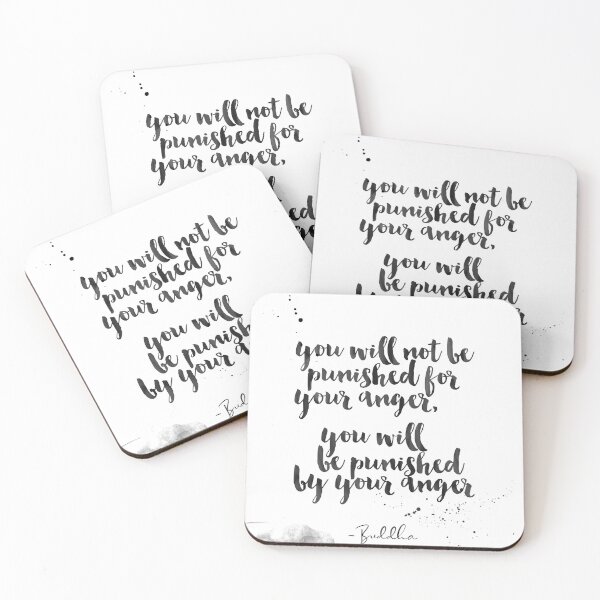 you will not be
punished for
your anger,
you will not be
punished for
your anger,
you will
be punished
you will not be
punished for
your anger,
you will
be punish
by your
you will not be
punished for
your anger,
you will
be punished
by your anger
- Buddha